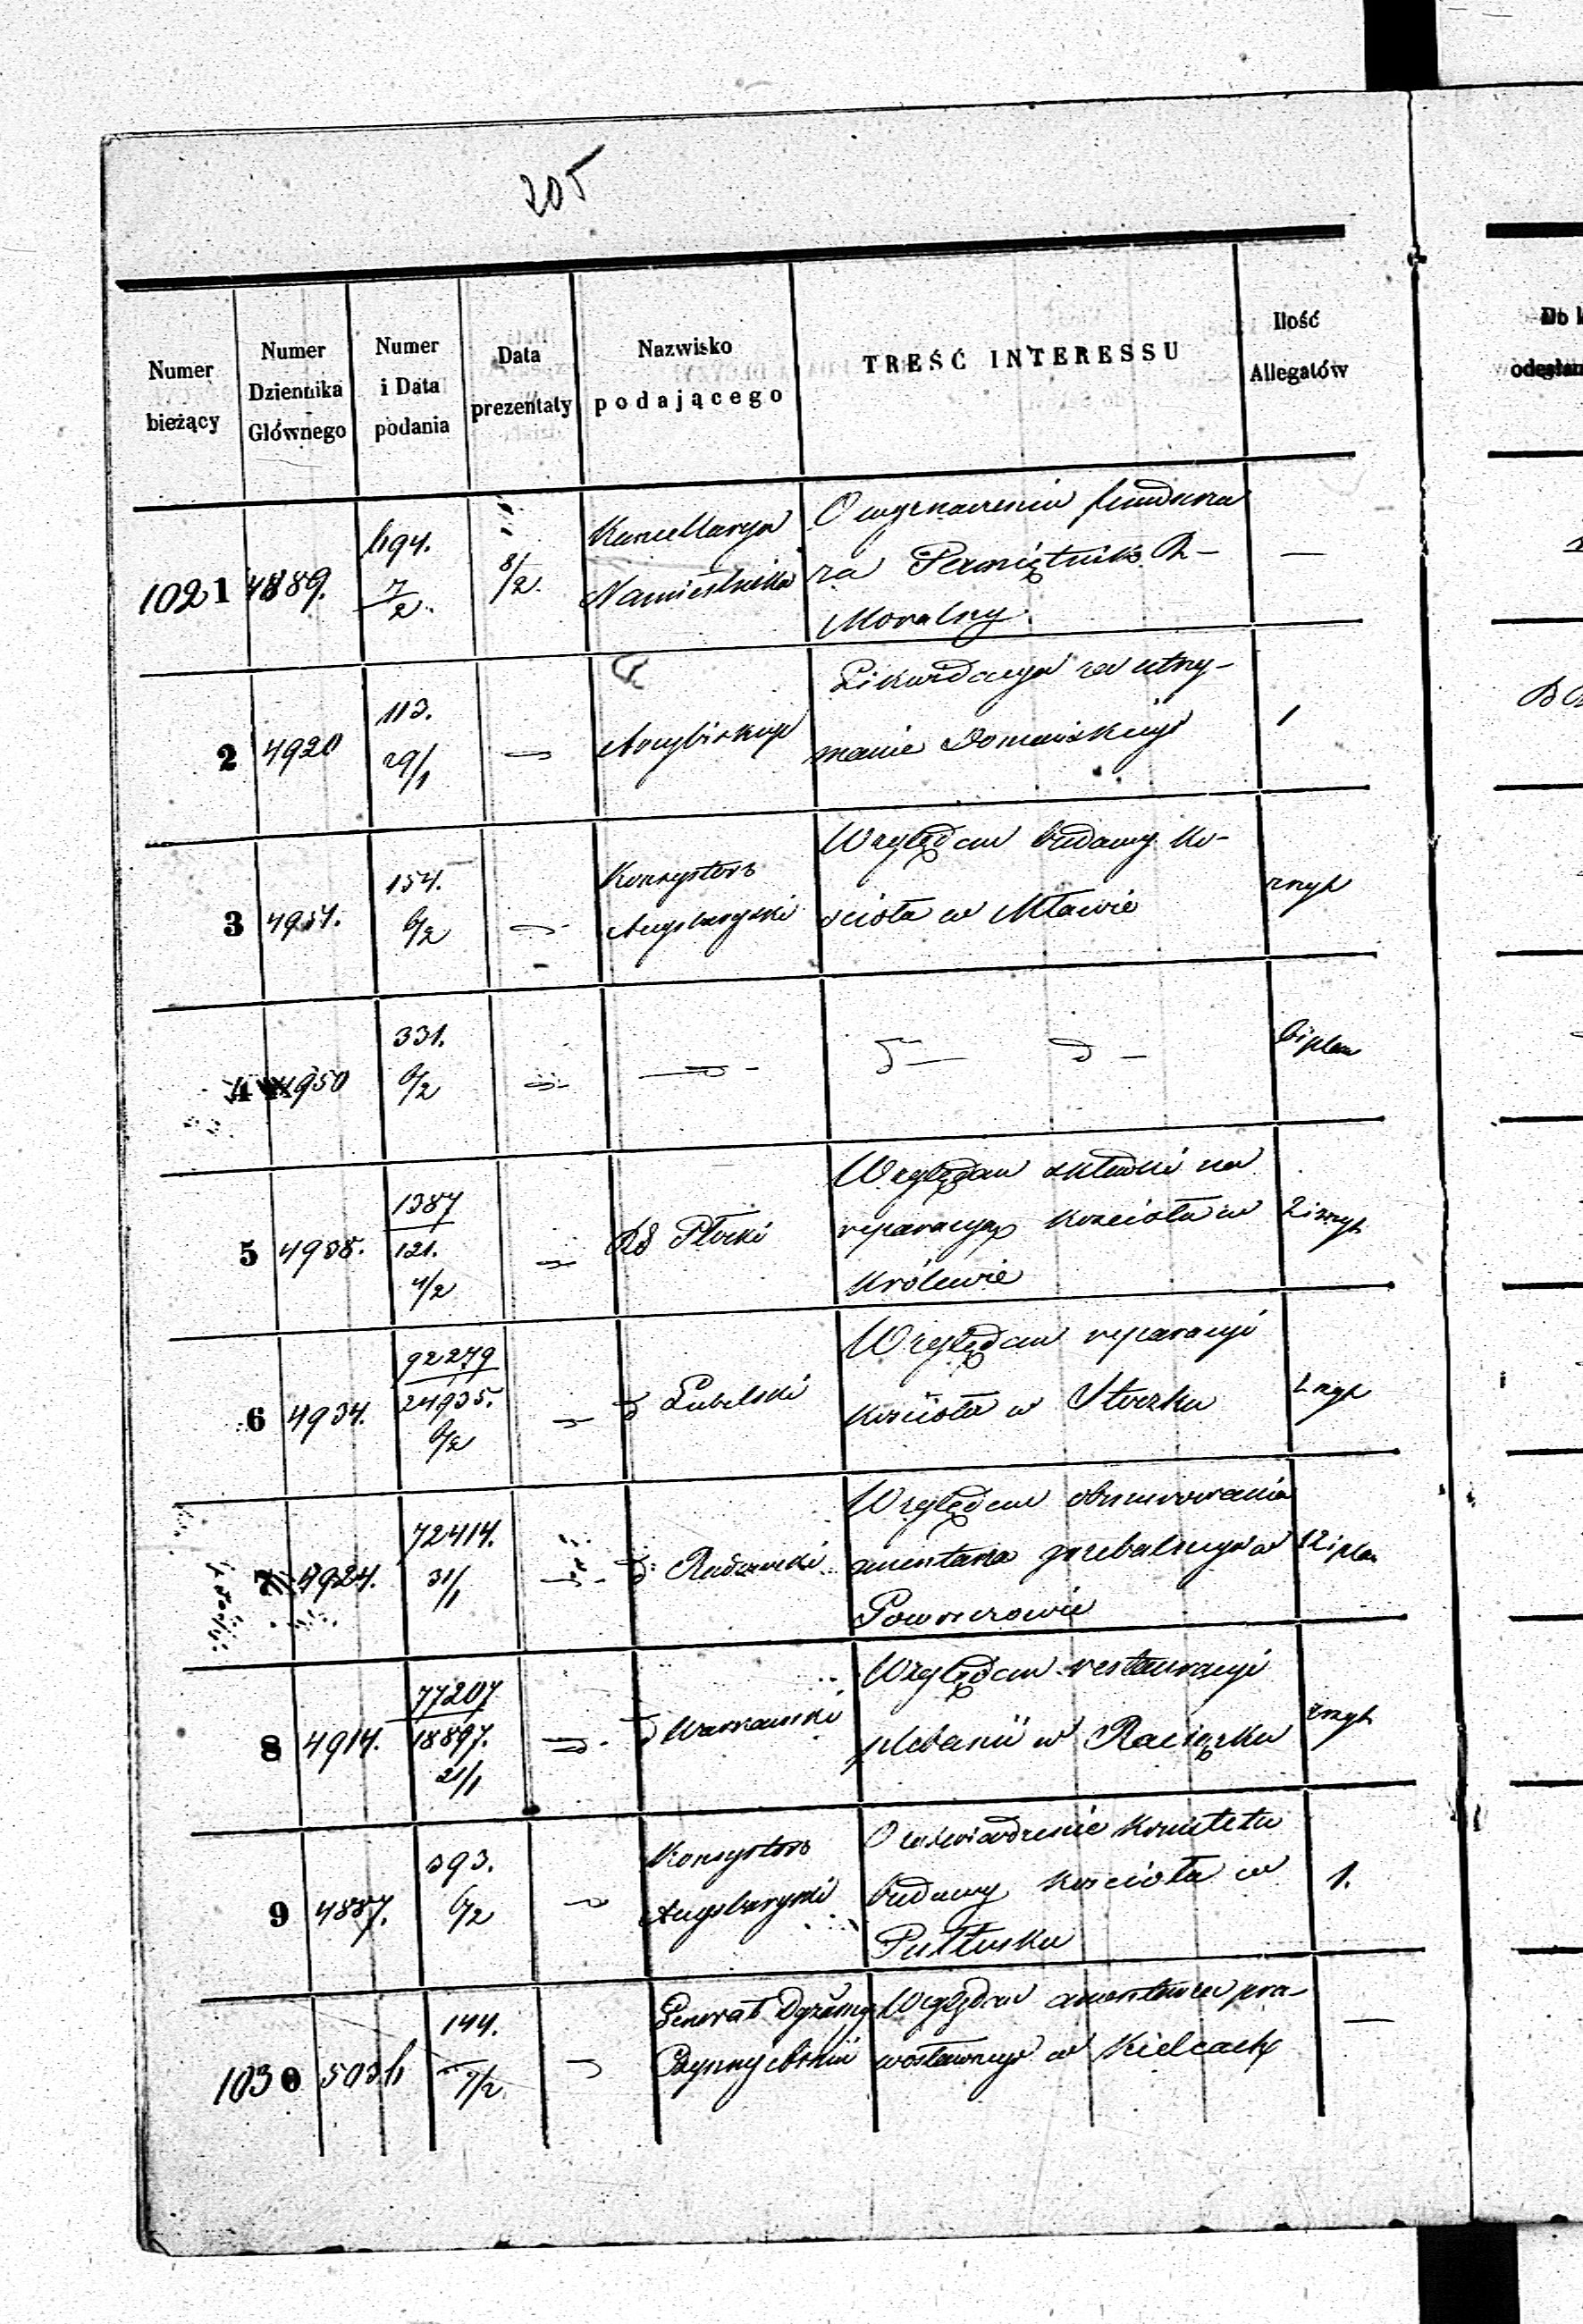 205
Numer bieżący
Numer Dziennika Głównego
Numer i Data podania
Data prezentaty
Nazwisko podającego
TREŚĆ INTERESSU
Ilość Allegatów
1021 4889. 694. 7/2. 8/2. Kancellarya Namiestnika
O wyznaczeniu funduszu
za Pamiętnik R-
Moralny.
—
2 4920 113. 29/1 Arcybiskup
Likwidacya za utrzy-
manie Domańskiego
1
3 154. 6/2 Konsystorz Augsburgski
Względem budowy Ko-
ścioła w Mławie
zszyt
4 4950 331. 6/2
i plan
5 4938. 1387 121. 4/2 RG Płocki
Względem składki na
reparacyą kościoła w
Królewie
6 4934. 92279 24935. 6/2 Lubelski
Względem reparacyi
kościoła w Stoczku
7 4924. 72414. 31/1 Radomski
Względem obmurowania
cmentarza grzebalnego w
8 4914. 77207 18897. 21/1 Warszawski
Względem restauracyi
plebanii w Raciążku
zszyt
9 4887. 393. 6/2 Konsystorz Augsburgski
O zaświadczenie Komitetu
budowy kościoła w
Pułtusku
1.
1030 144. 7/2 Generał Dyżurny
Względem cmentarza pra-
wosławnego w Kielcach
—
Do k
odesłan